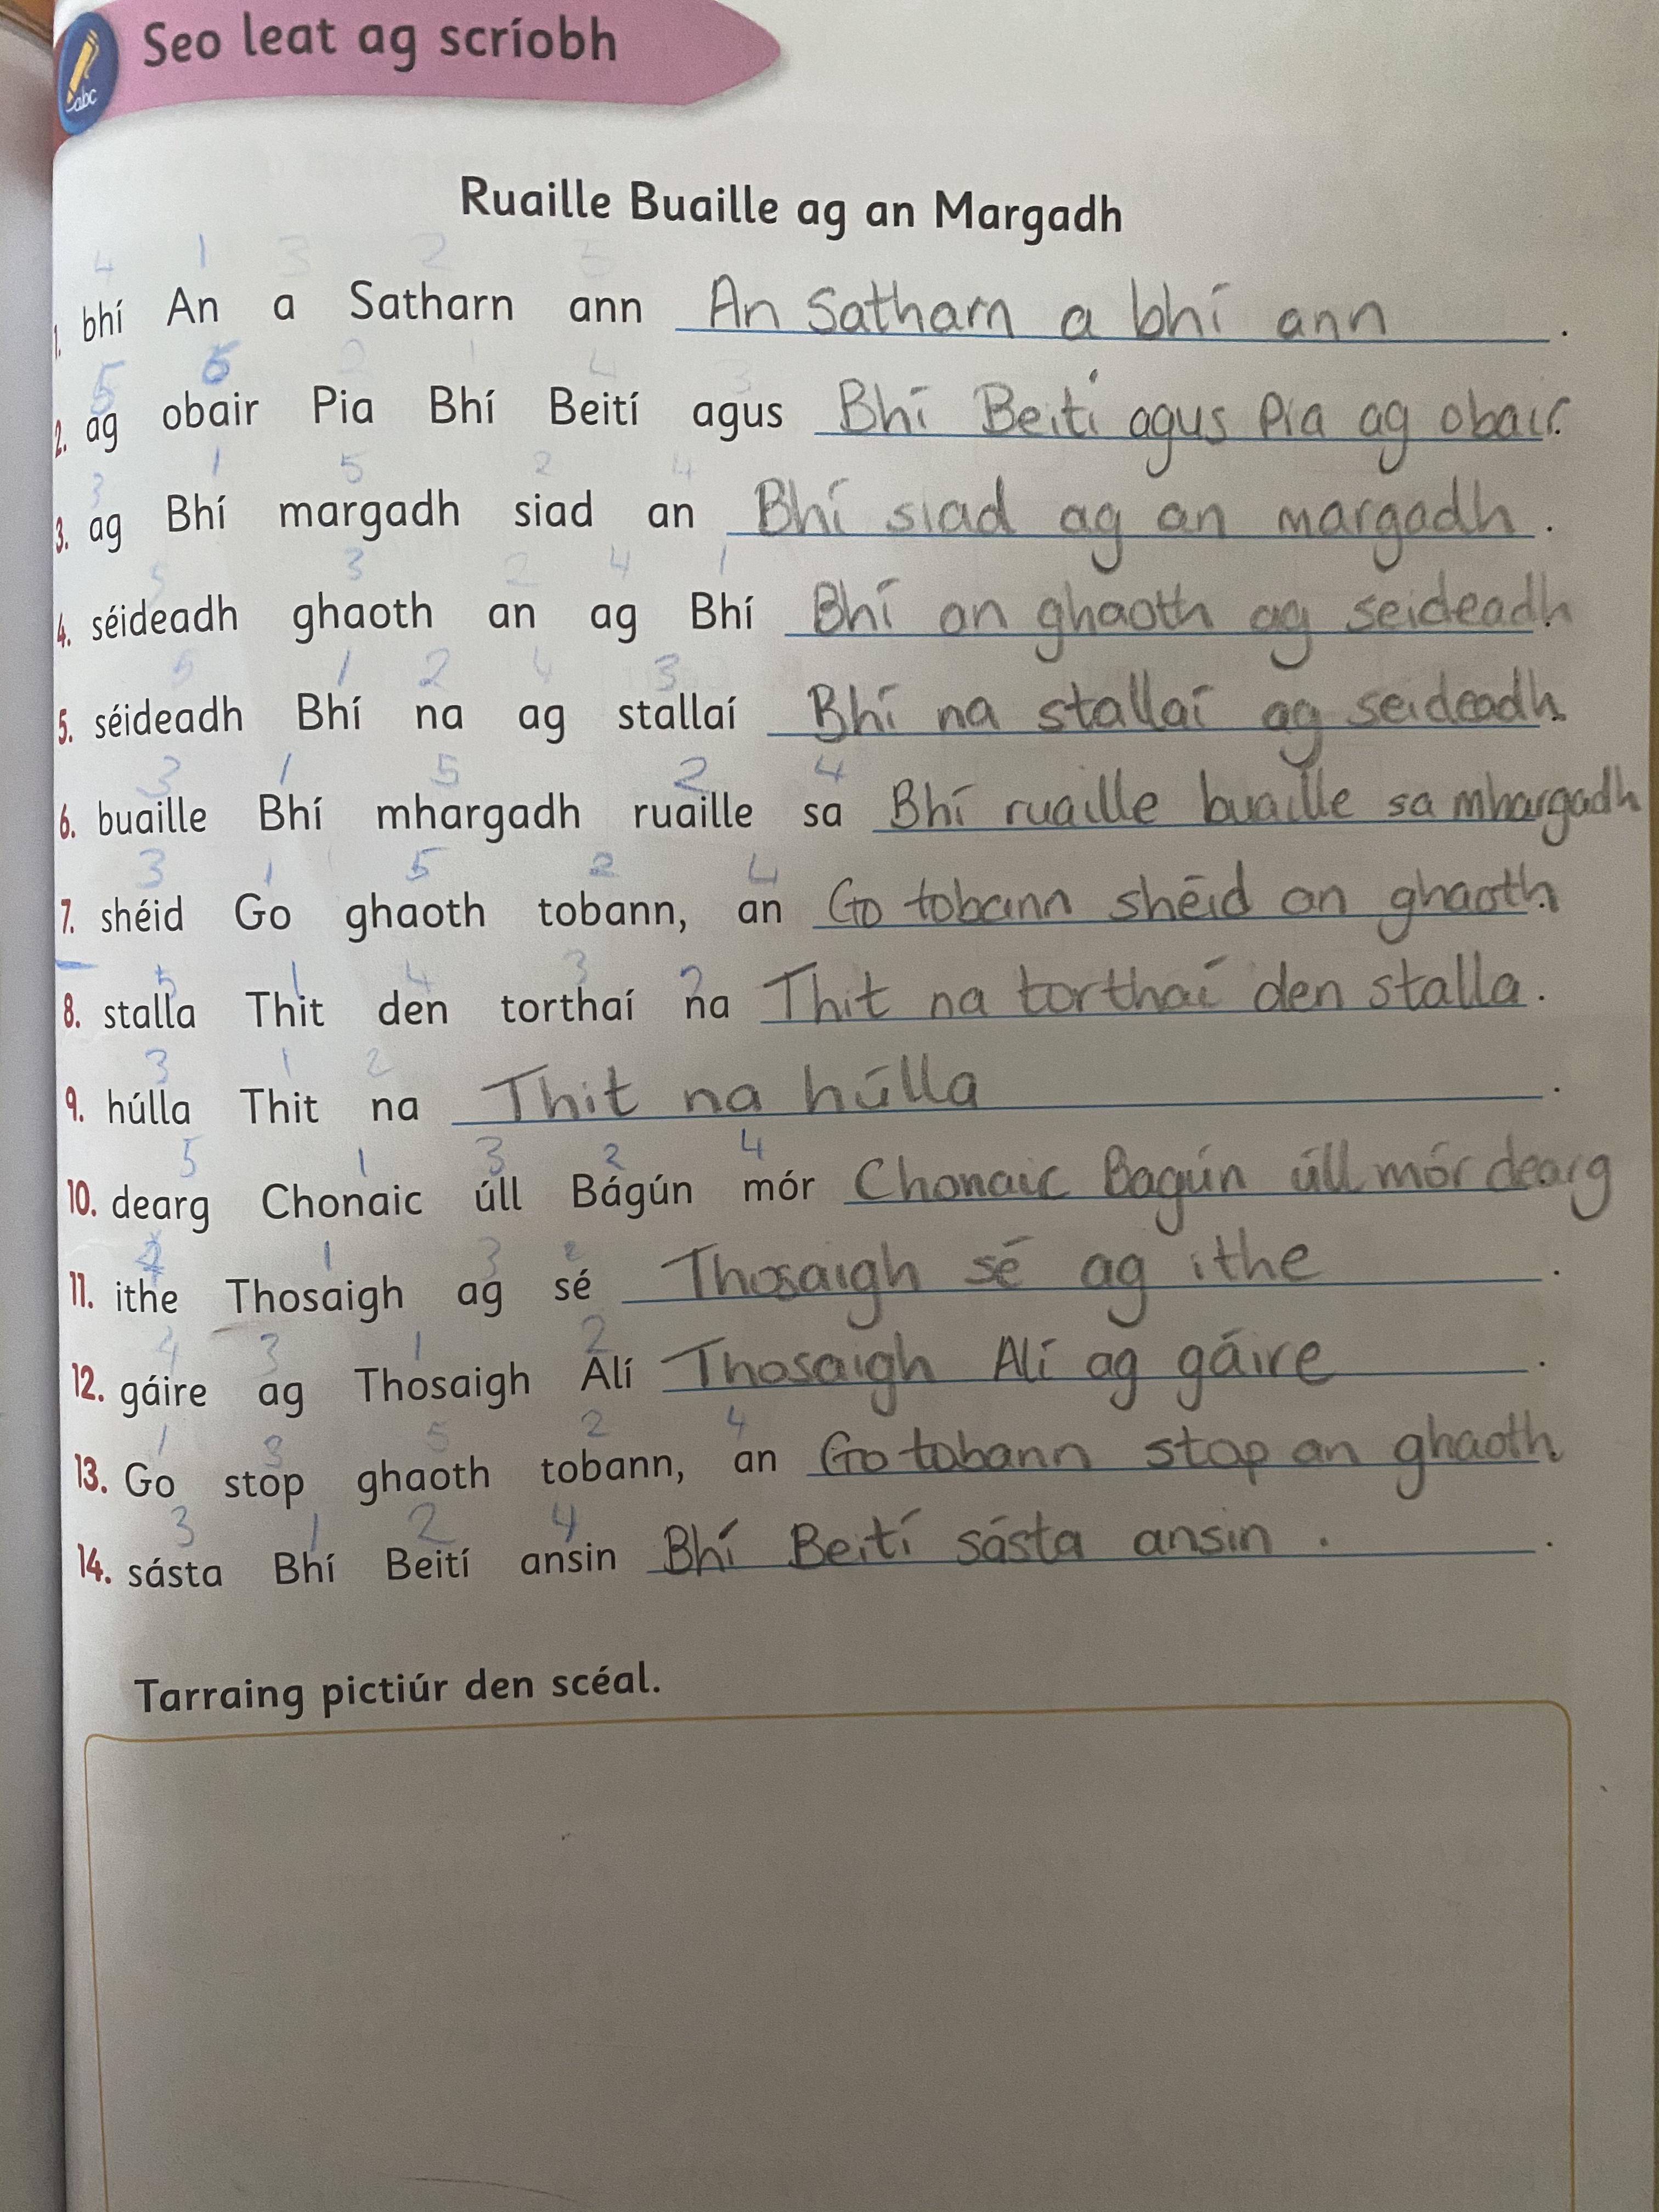 Seo leat ag scríobh
abc
Ruaille Buaille ag an Margadh
4 1 3 2 5
1. bhí An a Satharn ann An Satharn a bhí ann .
5 6 2 1 4 3
2. ag obair Pia Bhí Beití agus Bhí Beití agus Pia ag obair.
3 1 5 2 4
3. ag Bhí margadh siad an Bhí siad ag an margadh .
5 3 2 4 1
4. séideadh ghaoth an ag Bhí Bhí an ghaoth ag seideadh.
5 1 2 4 3
5. séideadh Bhí na ag stallaí Bhí na stallaí ag seideadh.
3 1 5 2 4
6. buaille Bhí mhargadh ruaille sa Bhí ruaille buaille sa mhargadh
3 1 5 2 4
7. shéid Go ghaoth tobann, an Go tobann shéid an ghaoth.
5 1 4 3 2
8. stalla Thit den torthaí na Thit na torthaí den stalla.
3 1 2
9. húlla Thit na Thit na húlla .
5 1 3 2 4
10. dearg Chonaic úll Bágún mór Chonaic Bagún úll mór dearg
4 1 3 2
11. ithe Thosaigh ag sé Thosaigh sé ag ithe .
4 3 1 2
12. gáire ag Thosaigh Alí Thosaigh Alí ag gáire .
1 3 5 2 4
13. Go stop ghaoth tobann, an Go tobann stop an ghaoth.
3 1 2 4
14. sásta Bhí Beití ansin Bhí Beití sásta ansin . .
Tarraing pictiúr den scéal.